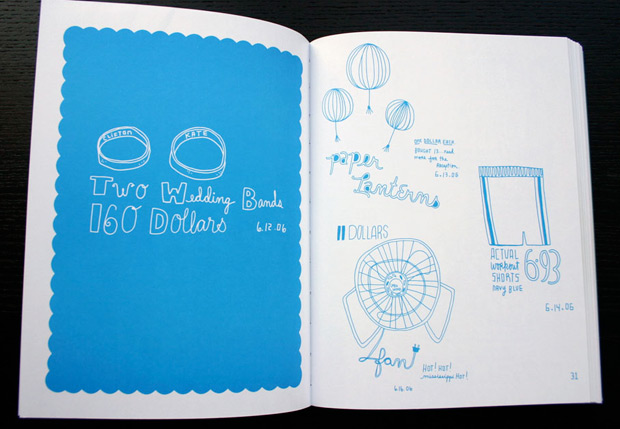 CLIFTON
KATE
Two Wedding Bands
160 Dollars
6.12.06
ONE DOLLAR EACH
BOUGHT 12...need
more for the
reception.
6.13.06
paper
Lanterns
11 DOLLARS
fan
HOT! HOT!
mississippi HOT!
6.14.06
ACTUAL
workout
SHORTS
NAVY BLUE
6.93
6.14.06
31